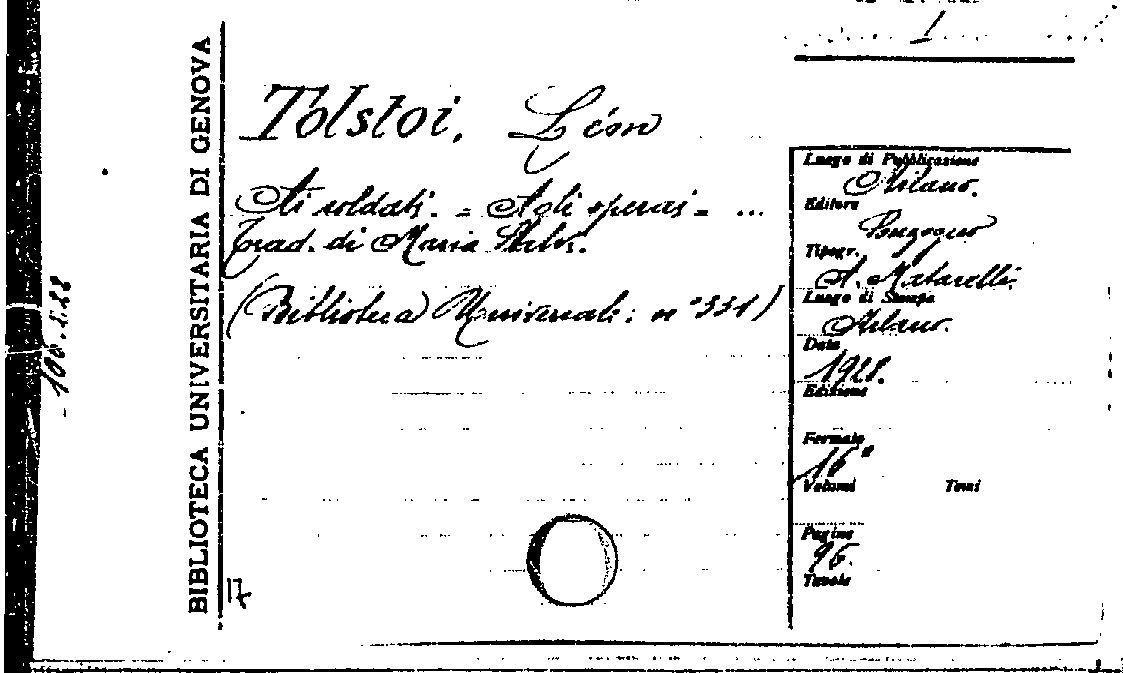 1
BIBLIOTECA UNIVERSITARIA DI GENOVA
Tolstoi, Léon
Ai soldati. = Agli operai = ...
Trad. di Maria
(Biblioteca Universale: n° 331)
Luogo di Pubblicazione
Milano.
Editore
Sonzogno
Tipogr.
A. Matarelli.
Luogo di Stampa
Milano.
Data
1921.
Edizione
Formato
16°
Volumi Tomi
Pagine
96.
Tavole
17